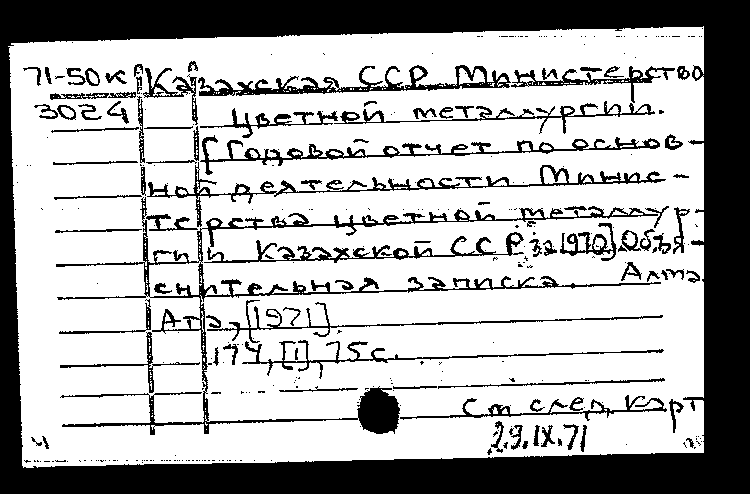 71-50к Казахская ССР Министерство
3024 цветной металлургии.
[Годовой отчет по основ-
ной деятельности Минис-
терства цветной металлур-
гии Казахской ССР за 1970] Объя-
снительная записка. Алма
Ата, [1971].
174, [1], 75 с.
См след, карт
29.IX.71
ч